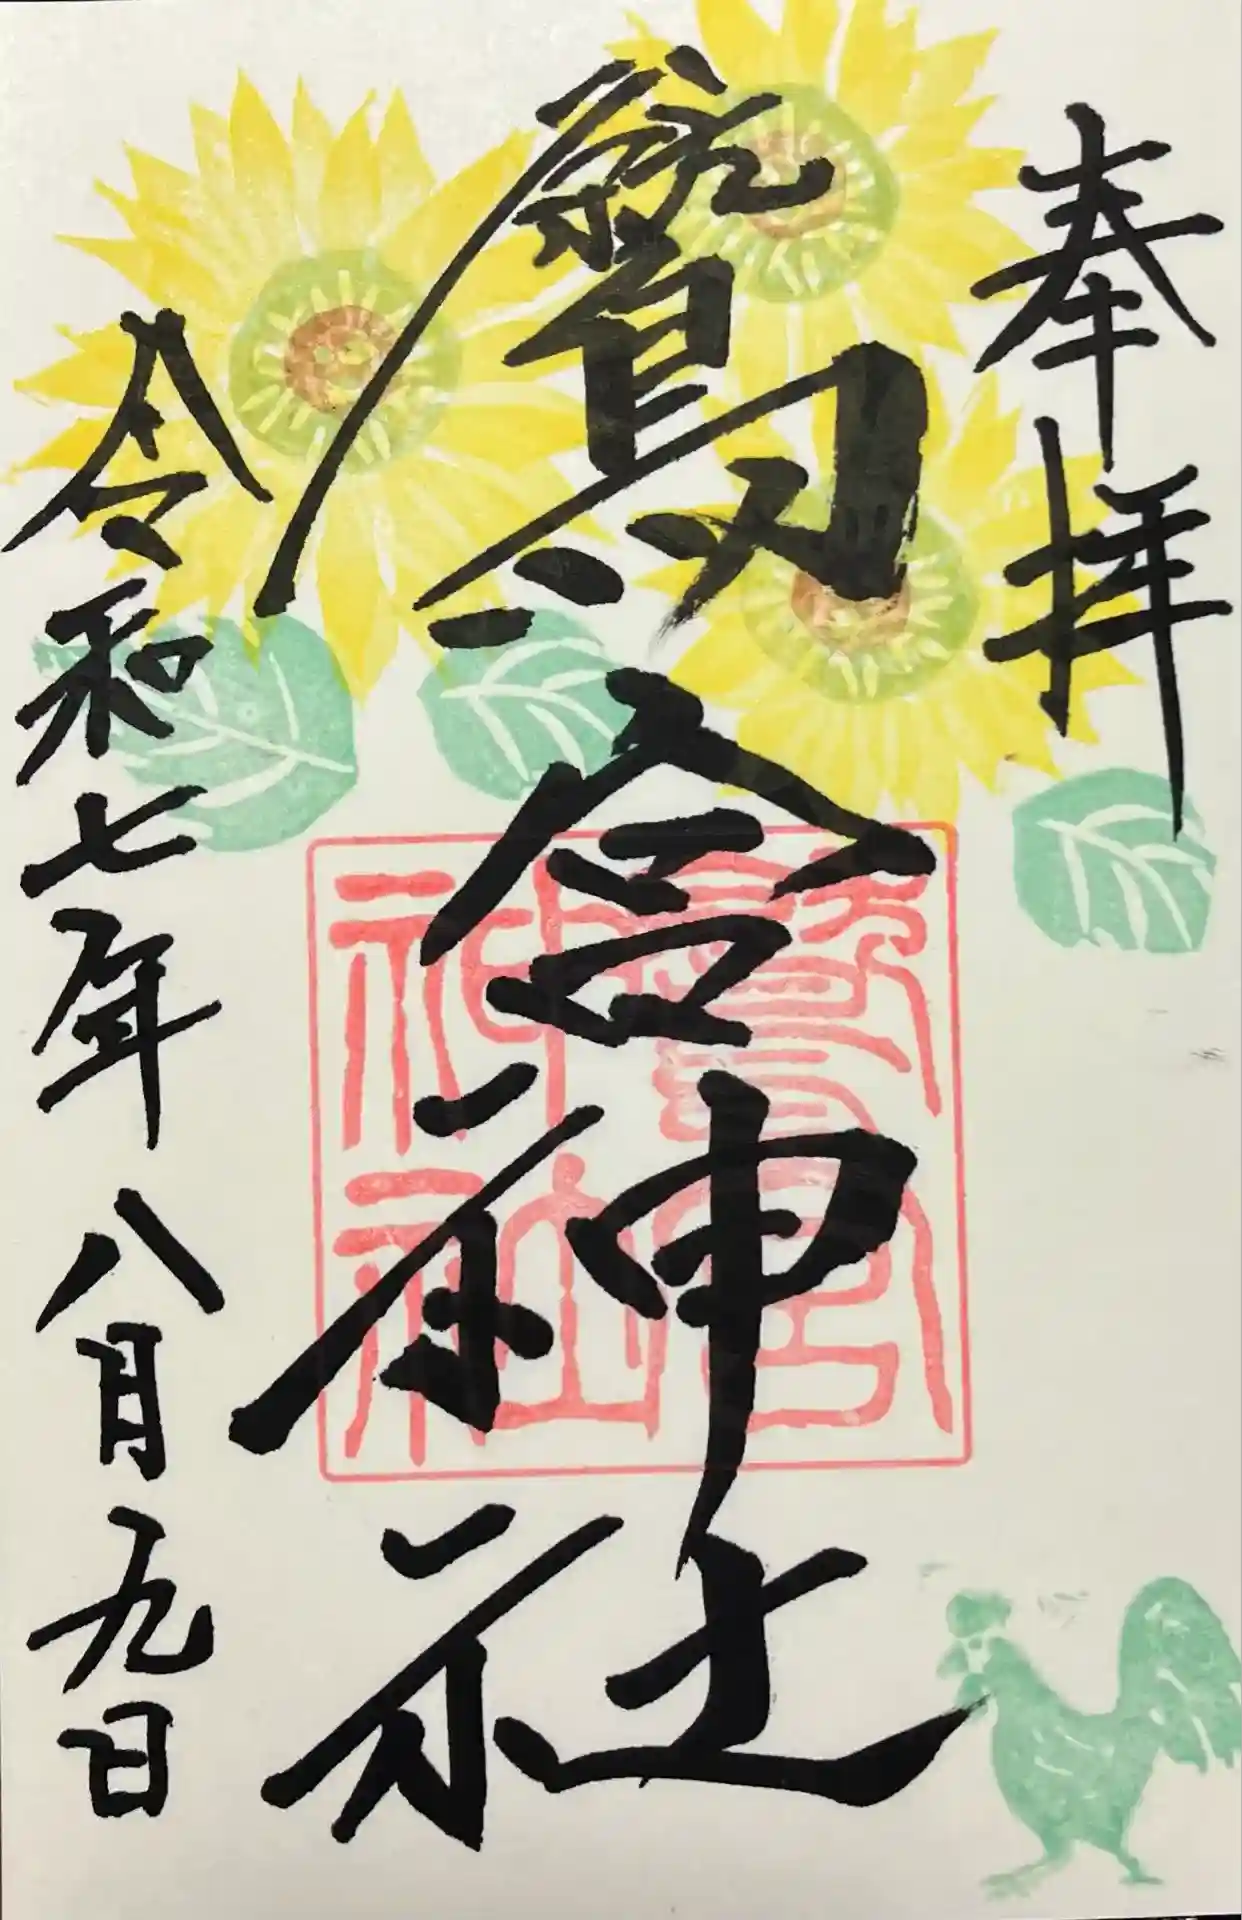 奉拝
鷲宮神社
令和七年八月九日
鷲宮神社